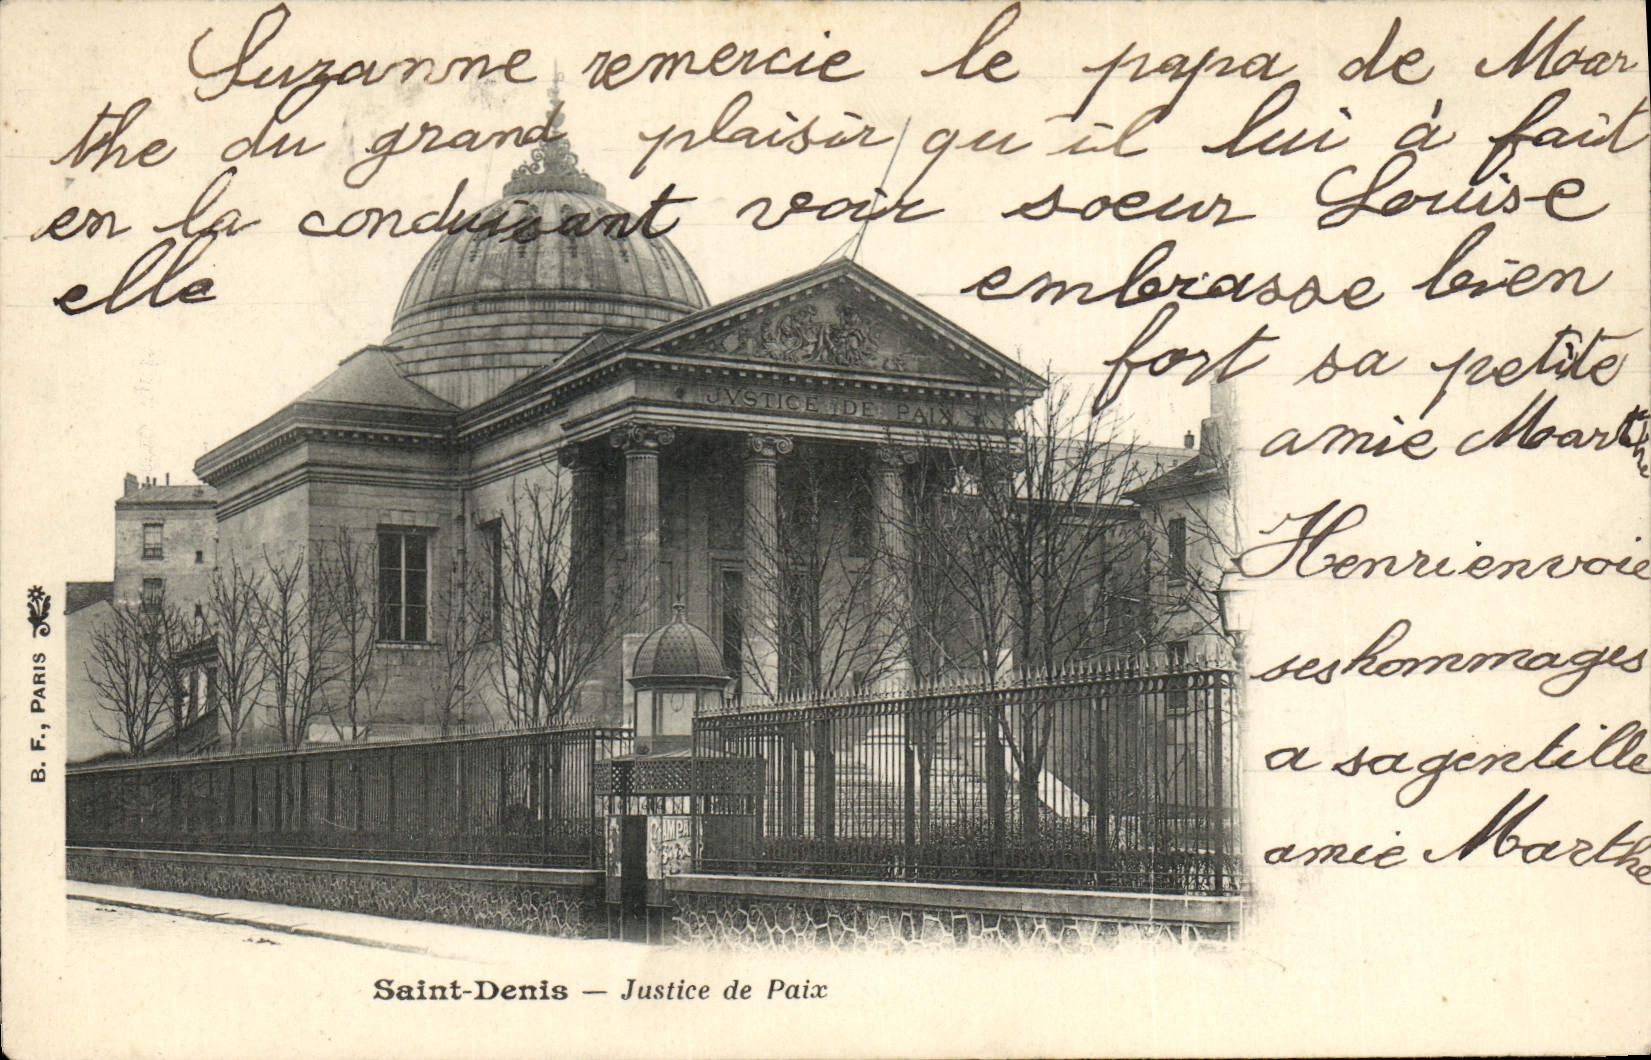 Suzanne remercie le papa de Mar
the du grand plaisir qu'il lui à fait
en la conduisant voir sœur Louise
elle embrasse bien
fort sa petite
amie Marthe
Henri envoie
ses hommages
a sa gentille
amie Marthe
JVSTICE DE PAIX
B. F., PARIS
Saint-Denis — Justice de Paix